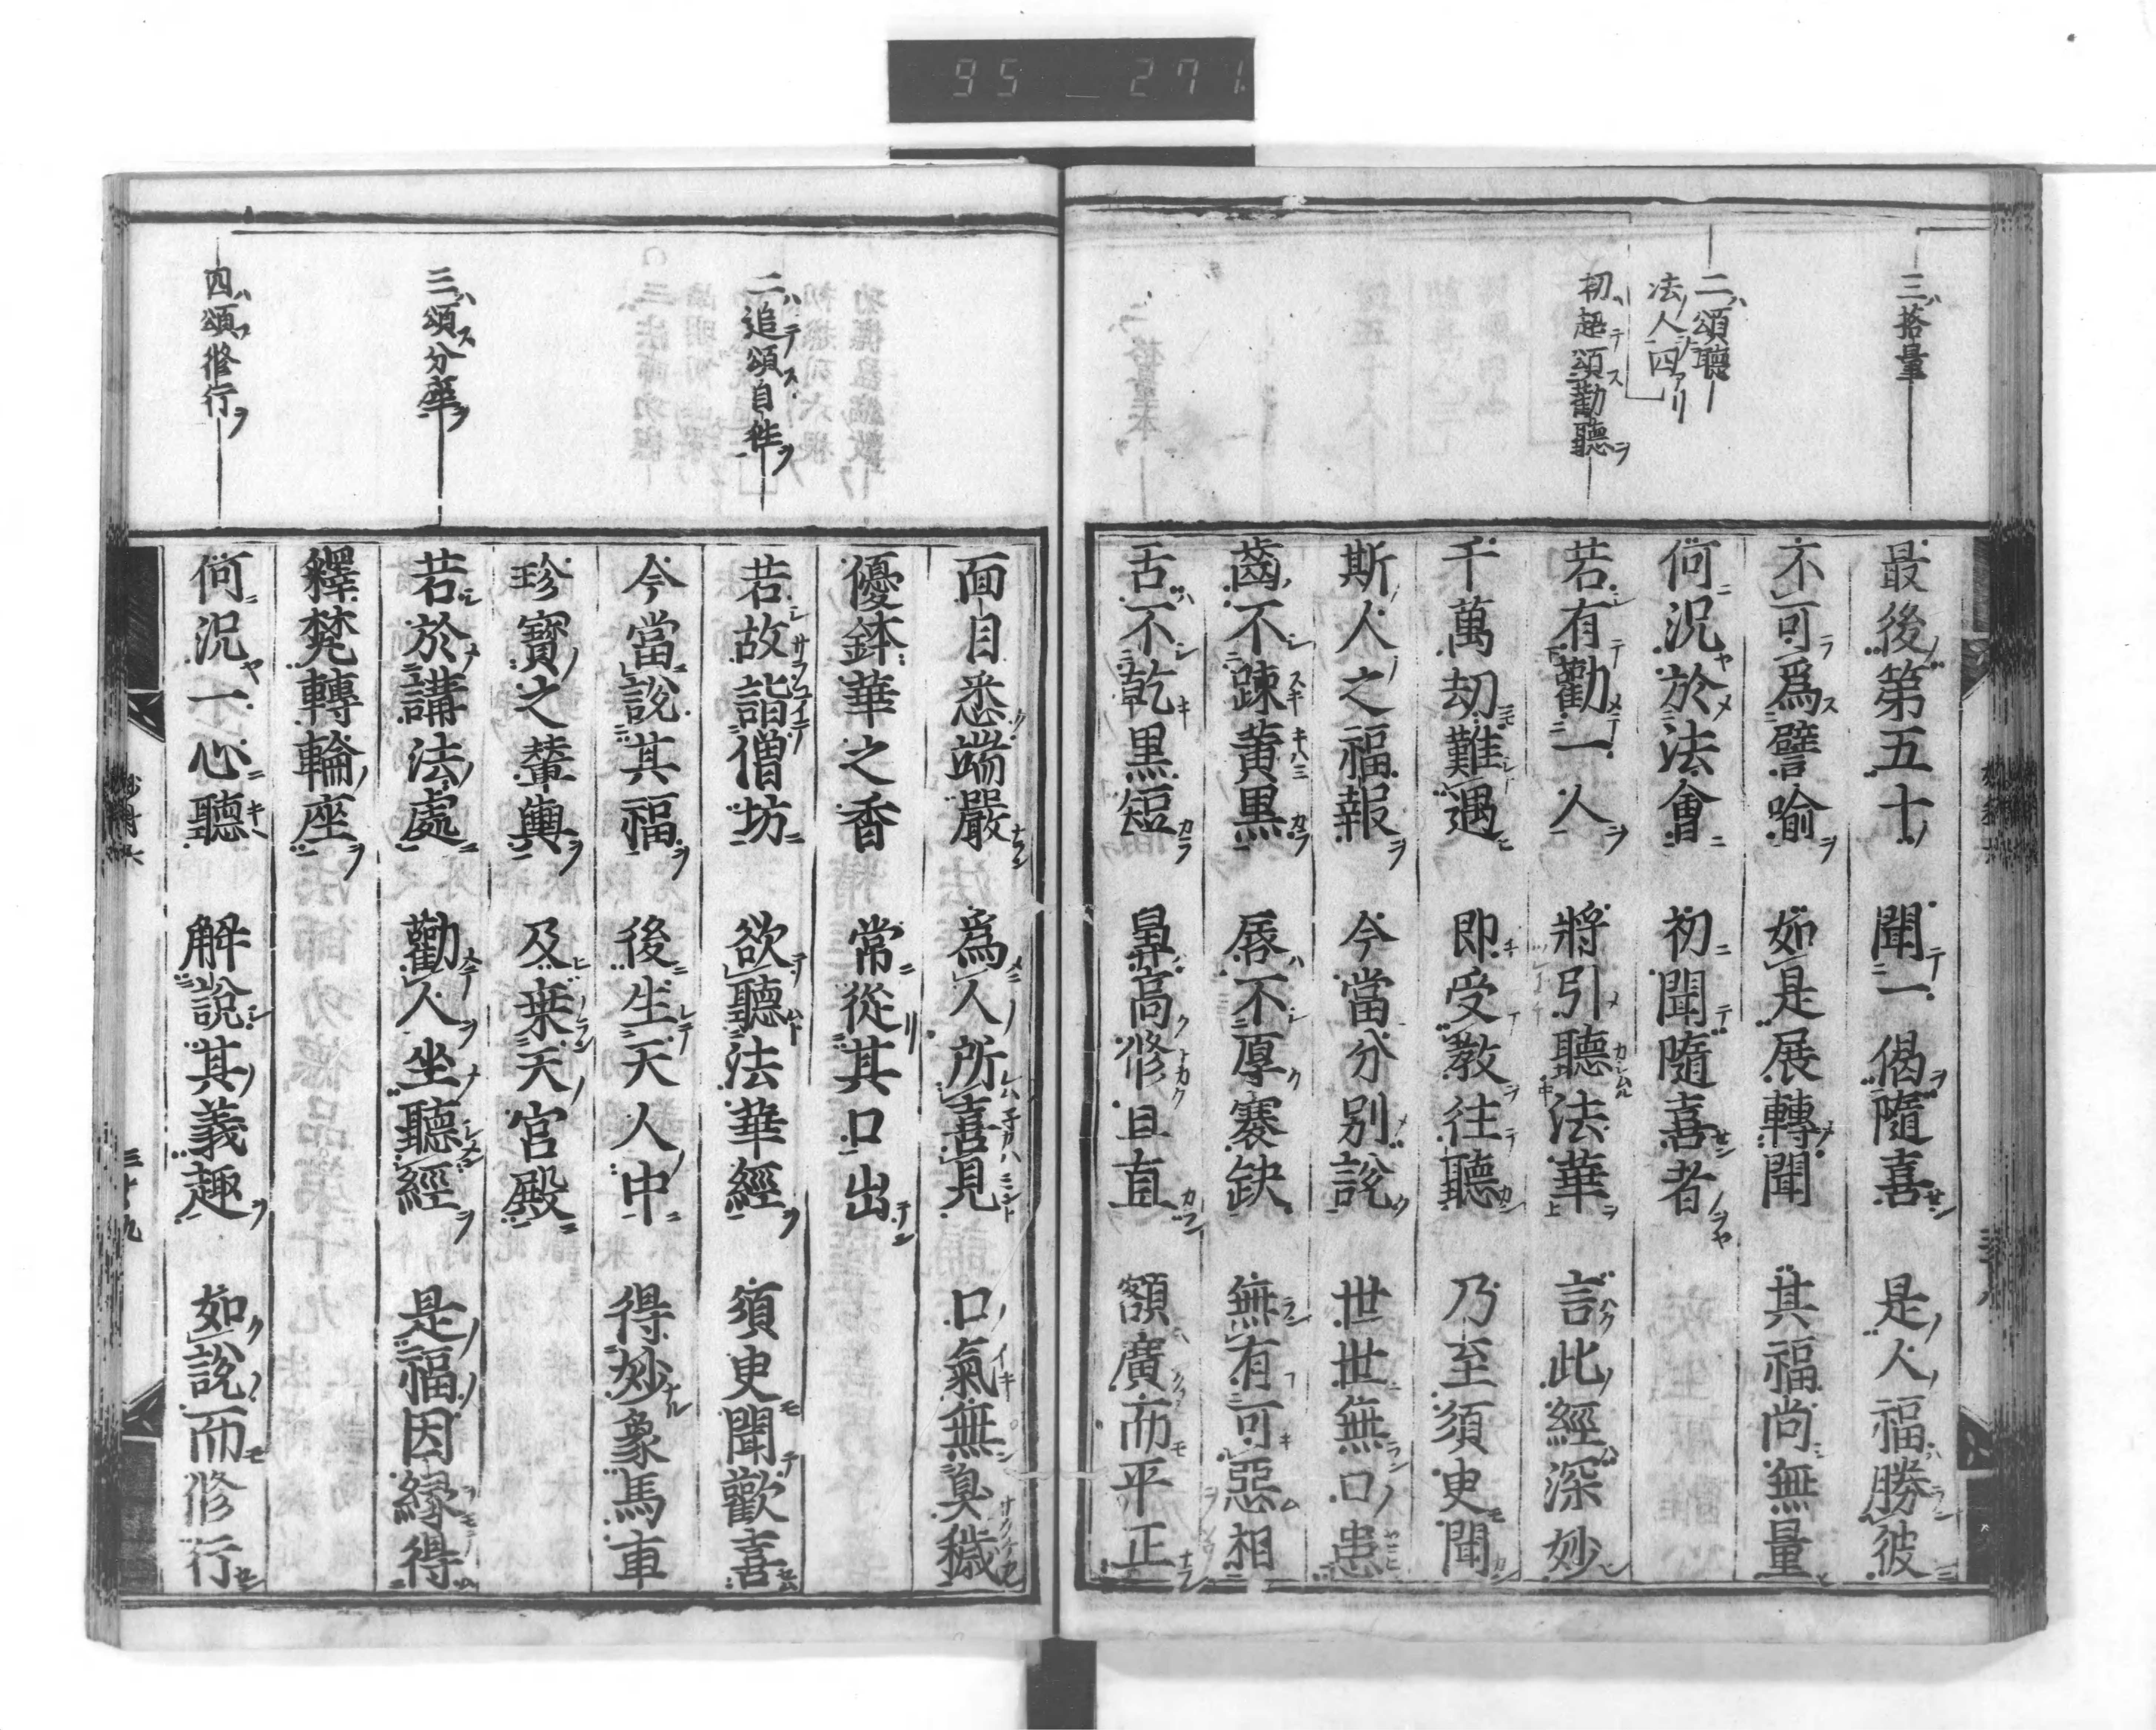 95_271.
三拾量
最後第五十 聞一偈隨喜 是人福勝彼
不可爲譬喻 如是展轉聞 其福尚無量
二頌聽
法人四
何況於法會 初聞隨喜者
初超頌勸聽
若有勸一人 將引聽法華 言此經深妙
千萬劫難遇 即受教往聽 乃至須臾聞
斯人之福報 今當分別說 世世無口患
齒不踈黃黑 唇不厚褰缺 無有可惡相
舌不乾黑短 鼻高修且直 額廣而平正
面目悉端嚴 爲人所喜見 口氣無臭穢
優鉢華之香 常從其口出
二追頌自往
若故詣僧坊 欲聽法華經 須臾聞歡喜
今當說其福 後生天人中 得妙象馬車
珍寶之輦輿 及乗天宮殿
三頌分座
若於講法處 勸人坐聽經 是福因緣得
釋梵轉輪座
四頌修行
何況一心聽 解說其義趣 如說而修行
三十九